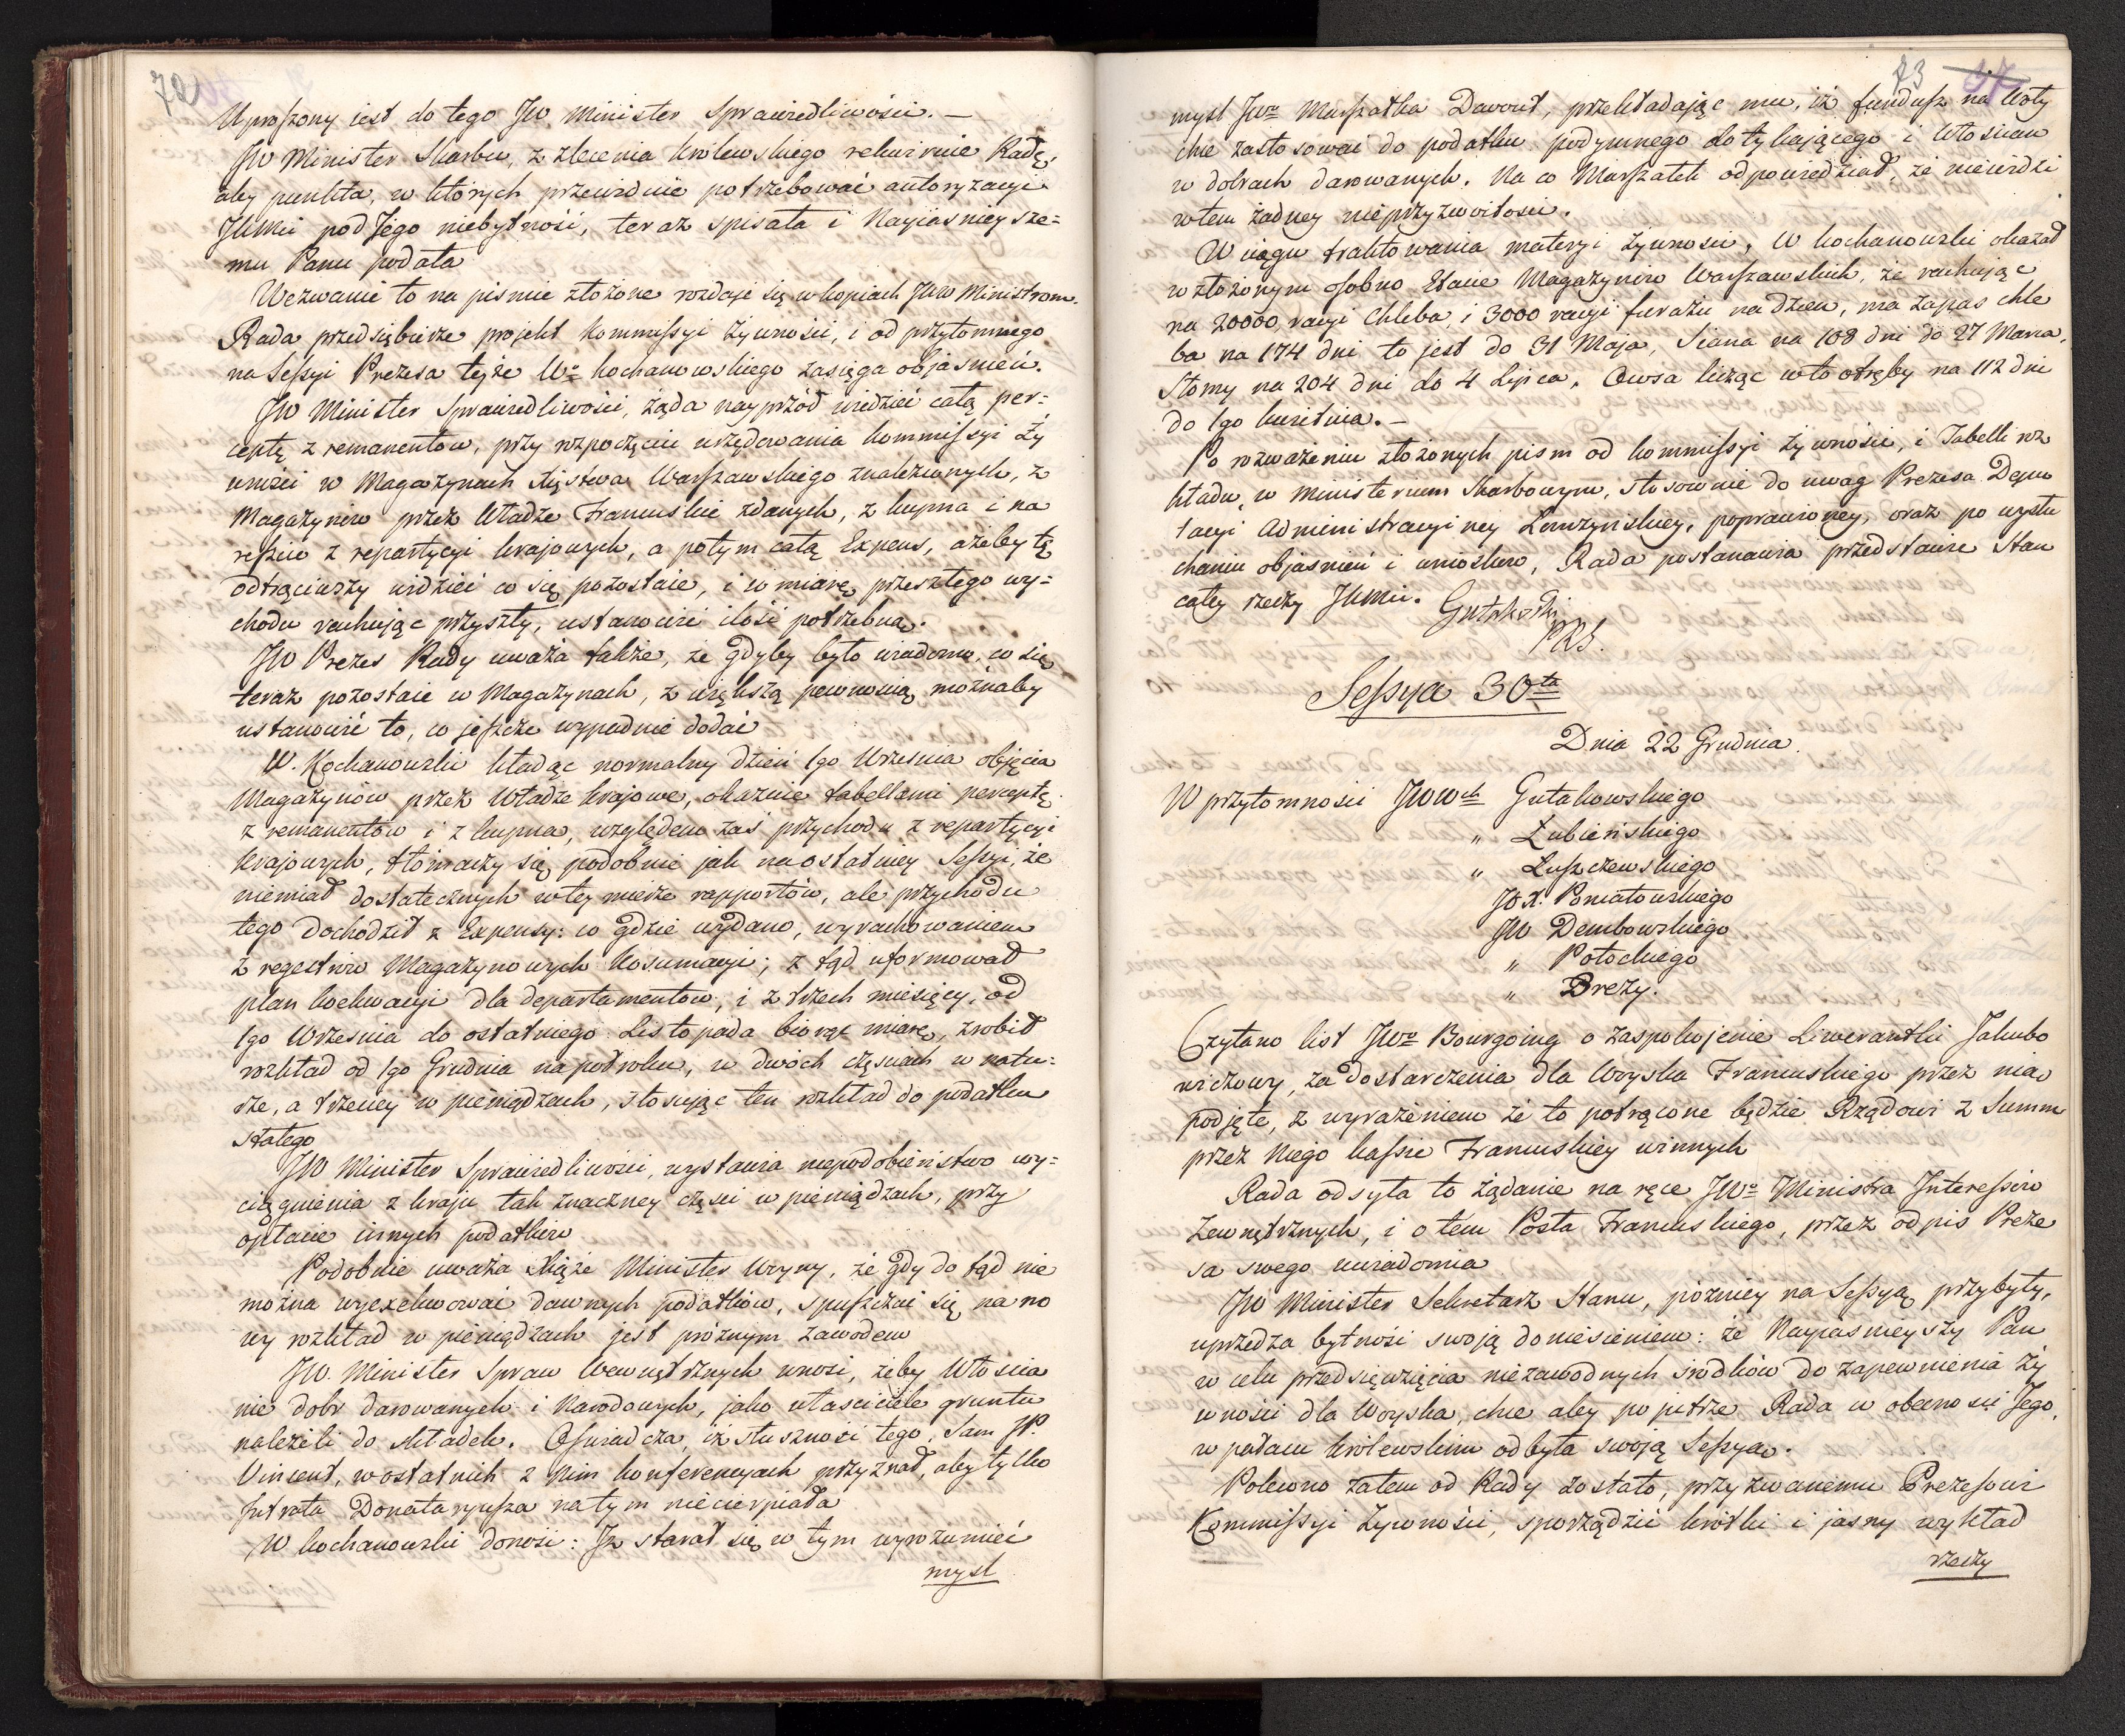 72
Uproszony iest do tego JW Minister Sprawiedliwości. —
JW Minister Skarbu, z zlecenia Królewskiego rekwiruie Radę,
aby punkta, w których przewidzie potrzebować autoryzacyi
JKMci pod Jego niebytność, teraz spisała i Nayiaśnieysze-
mu Panu podała
Wezwanie to na pismie złożone rozdaje się w kopiach JWW Ministrom.
Rada przedsiębierze projekt Kommissyi Żywności, i od przytomnego
na Sessyi Prezesa teyże Wo Kochanowskiego zasięga objaśnień.
JW Minister Sprawiedliwości, żąda nayprzód wiedzieć całą per-
ceptę z remanentow, przy rozpoczęciu urzędowania Kommissyi Ży
wności w Magazynach Xięstwa Warszawskiego znalezionych, z
Magazynów przez Władze Francuskie zdanych, z kupna i na
reszcie z repartycyi krajowych, a potym całą Expens, ażeby tę
odtrąciwszy widzieć co się pozostaie, i w miarę przeszłego wy-
chodu rachując przyszły, ustanowić ilość potrzebną.
JW Prezes Rady uważa także, że gdyby było wiadomo, co się
teraz pozostaie w Magazynach, z większą pewnością możnaby
ustanowić to, co jeszcze wypadnie dodać
W. Kochanowski kładąc normalny dzień 1go Września objęcia
Magazynów przez Władze krajowe, okazuie tabellami perceptę
z remanentów i z kupna, względem zaś przychodu z repartycyi
Krajowych, tłómaczy się podobnie jak na ostatniey Sessyi, że
niemiał dostatecznych w tey mierze rapportów, ale przychodu
tego dochodził z Expensy: co gdzie wydano, wyrachowaniem
z regestrów Magazynowych Kosumacyi; z tąd uformował
plan koekwacyi dla departamentow, i z trzech miesięcy, od
1go Września do ostatniego Listopada biorąc miarę, zrobił
rozkład od 1go Grudnia na pół roku, w dwóch częściach w natu-
rze, a trzeciey w pieniądzach, stosując ten rozkład do podatku
stałego
JW Minister Sprawiedliwości, wystawia niepodobieństwo wy-
ciągnienia z kraju tak znaczney części w pieniądzach, przy
opłacie innych podatków
Podobnie uważa Xiąże Minister Woyny, że gdy do tąd nie
można wyexekwować dawnych podatków, spuszczać się na no
wy rozkład w pieniądzach jest próżnym zawodem
JW. Minister Spraw Wewnętrznych wnosi, żeby Włościa
nie dobr darowanych i Narodowych, jako właściciele gruntu
należeli do składek. Oświadcza, iż słuszność tego, sam JP.
Vincent, w ostatnich z nim konferencyach przyznał, aby tylko
Intrata Donataryusza na tym niecierpiała
W Kochanowski donosi: Iż starał się w tym wyrozumieć
mysl
73
mysl JWo Marszałka Davout, przekładając mu, iż fundusz na Woły
chce zastosować do podatku podymnego dotykającego i Włościan
w dobrach darowanych. Na co Marszałek odpowiedział, że niewidzi
w tem żadney nieprzyzwoitości.
W ciągu traktowania materyi żywności, W Kochanowski okazał
w złożonym osobno Etacie Magazynów Warszawskich, że rachując
na 20000 racyi Chleba, i 3000 racyi furażu na dzień, ma zapas chle
ba na 174 dni to jest do 31 Maja, Siana na 108 dni do 27 Marca,
Słomy na 204 dni do 4 Lipca, Owsa licząc w to otręby na 112 dni
do 1go kwietnia. —
Po rozważeniu złożonych pism od Kommissyi Żywności, i Tabelli roz
kładu, w Ministerium Skarbowym, stosownie do uwag Prezesa Depu
tacyi Administracyiney Łomżyńskiey, poprawioney, oraz po wysłu
chaniu objaśnień i wniosków, Rada postanawia przedstawić Stan
całey rzeczy JKMci.
Gutakowski
PRS.
Sessya 30ta
Dnia 22 Grudnia.
W przytomności JWWch Gutakowskiego
" Łubieńskiego
" Łuszczewskiego
JO X. Poniatowskiego
JW Dembowskiego
" Potockiego
" Brezy.
Czytano list JWo Bourgoing o zaspokojenie Liwerantki Jakubo
wiczowy, za dostarczenia dla Woyska Francuskiego przez nią
podjęte, z wyrażeniem że to potrącone będzie Rządowi z Summ
przez Niego kassie Francuskiey winnych
Rada odsyła to żądanie na ręce JWo Ministra Interessów
Zewnętrznych, i o tem Posła Francuskiego, przez odpis Preze
sa swego uwiadomia
JW Minister Sekretarz Stanu, pózniey na Sessyą przybyły,
uprzedza bytność swoją doniesieniem: że Nayiaśnieyszy Pan
w celu przedsięwzięcia niezawodnych srodków do zapewnienia Ży
wności dla Woyska, chce aby po jutrze Rada w obecności Jego,
w pałacu królewskim odbyła swoją Sessyą.
Polecono zatem od Rady zostało, przyzwanemu Prezesowi
Kommissyi Żywności, sporządzić krótki i jasny wykład
rzeczy